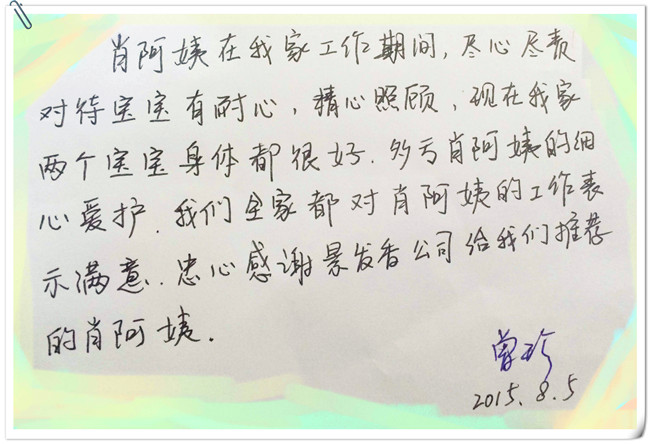 肖阿姨在我家工作期间,尽心尽责
对待宝宝有耐心,精心照顾,现在我家
两个宝宝身体都很好.多亏肖阿姨的细
心爱护.我们全家都对肖阿姨的工作表
示满意.忠心感谢景发香公司给我们推荐
的肖阿姨.
曾珍
2015.8.5